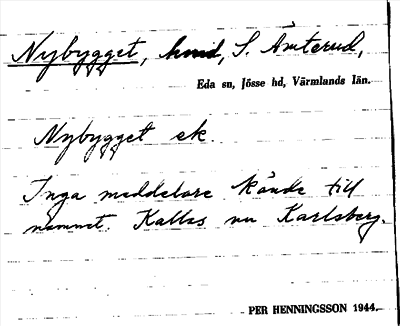 Nybygget, hmd, S. Ämterud,
Eda sn, Jösse hd, Värmlands län.
Nybygget ek.
Inga meddelare kände till
namnet. Kallas nu Karlsberg.
PER HENNINGSSON 1944.